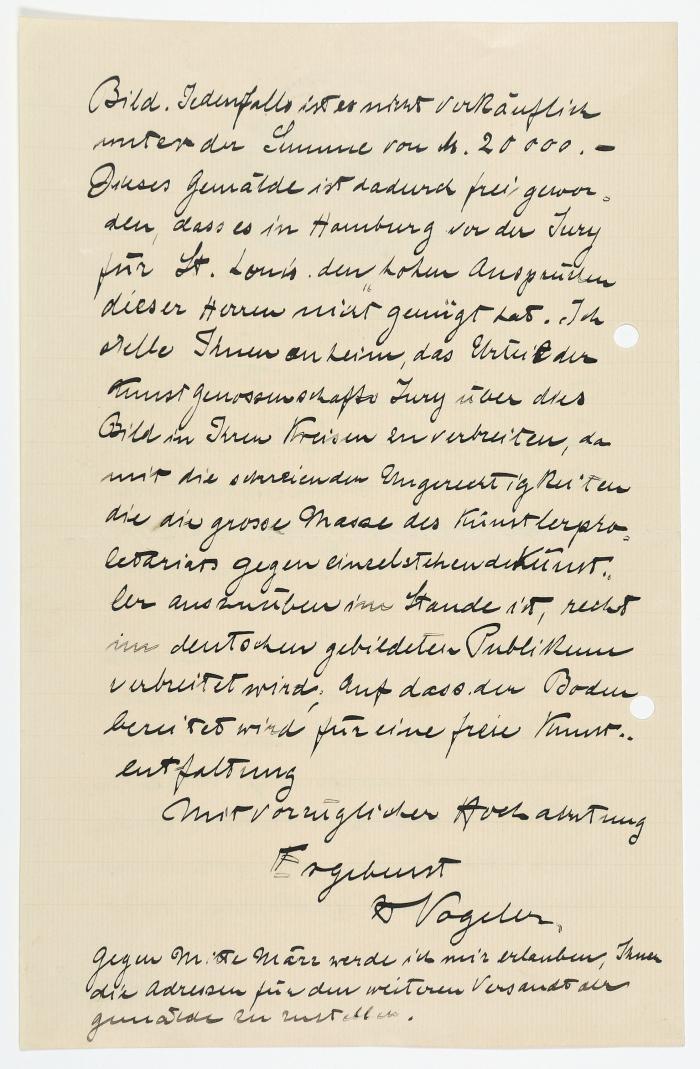 Bild. Jedenfalls ist es nicht verkäuflich
unter der Summe von M. 20 000. –
Dieses Gemälde ist dadurch frei gewor=
den, dass es in Hamburg vor der Jury
für St. Louis den hohen Ansprüchen
dieser Herren nicht genügt hat. Ich
stelle Ihnen anheim, das Urteil der
Kunstgenossenschafts Jury über dies
Bild in Ihren Kreisen zu verbreiten, da
mit die schreienden Ungerechtigkeiten
die die grosse Masse des Künstlerpro=
letariats gegen einzelstehende Künst..
ler auszuüben im Stande ist, recht
im deutschen gebildeten Publikum
verbreitet wird, Auf dass der Boden
bereitet wird für eine freie Kunst..
entfaltung
Mit vorzüglicher Hochachtung
Ergebenst
H Vogeler.
Gegen Mitte März werde ich mir erlauben, Ihnen
die Adressen für den weiteren Versandt der
Gemälde zu zustellen.